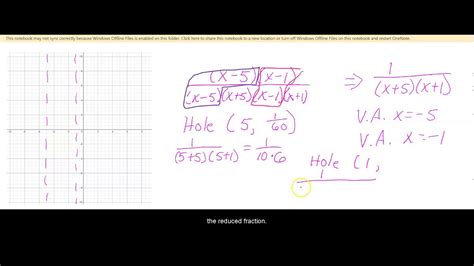 This notebook may not sync correctly because Windows Offline Files is enabled on this folder. Click here to share this notebook to a new location or turn off Windows Offline Files on this notebook and restart OneNote.
(x-5)(x-1)
(x-5)(x+5)(x-1)(x+1)
⇒ 1
(x+5)(x+1)
Hole (5, 1/60)
V.A. x=-5
V.A. x=-1
1/(5+5)(5+1) = 1/10·6
Hole (1,
1
the reduced fraction.